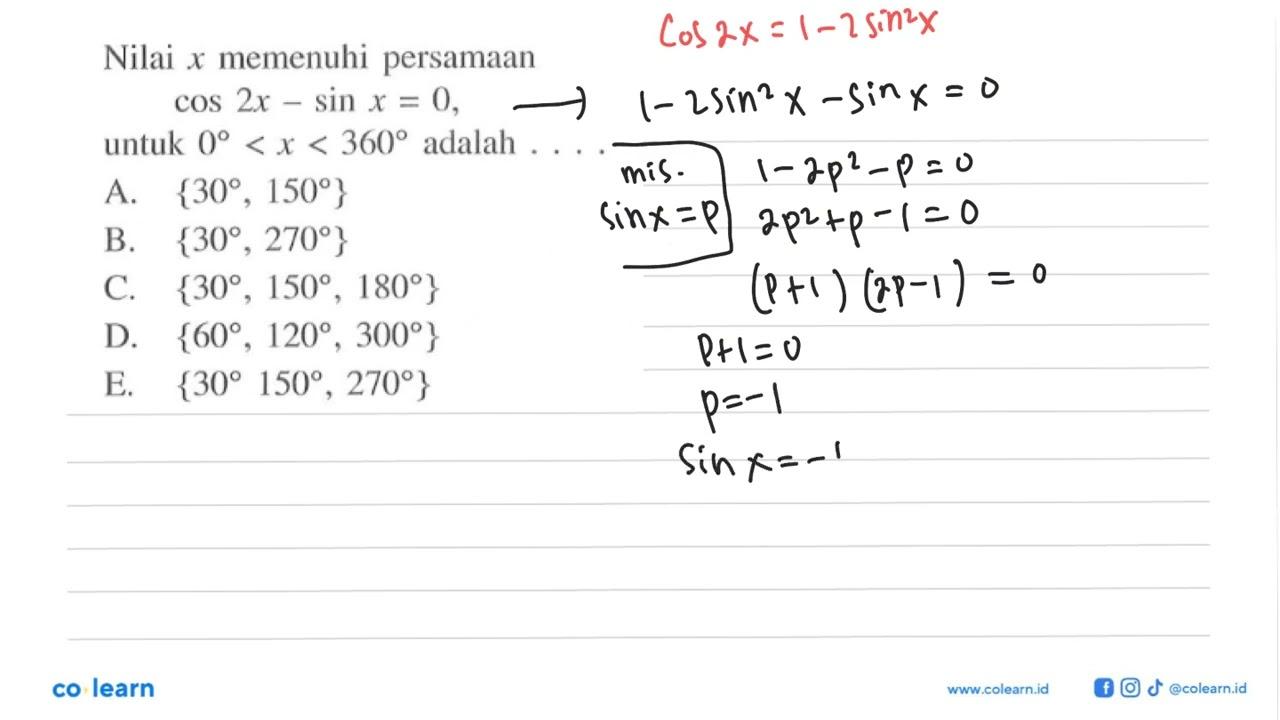 Nilai x memenuhi persamaan
cos 2x – sin x = 0,
untuk 0° < x < 360° adalah . . . .
A. {30°, 150°}
B. {30°, 270°}
C. {30°, 150°, 180°}
D. {60°, 120°, 300°}
E. {30° 150°, 270°}
Cos 2x = 1 - 2 sin²x
→ 1 - 2 sin² x - sin x = 0
mis.
sin x = p
1 - 2p² - p = 0
2p² + p - 1 = 0
(p+1) (2p-1) = 0
p+1 = 0
p = -1
sin x = -1
co learn
www.colearn.id
@colearn.id